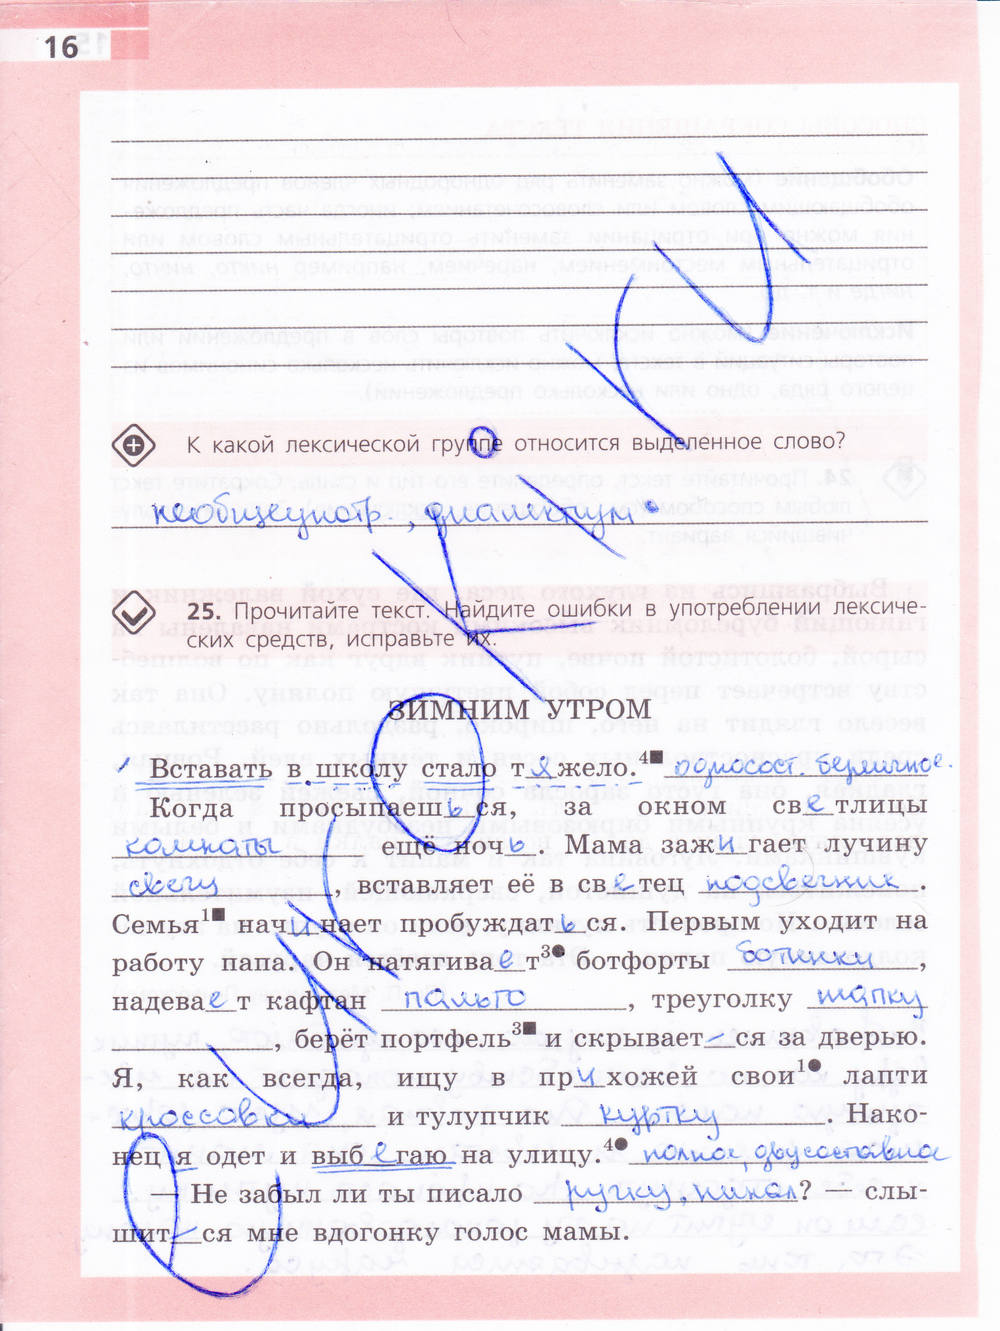 16
К какой лексической группе относится выделенное слово?
необщеупотр., диалектизм
25. Прочитайте текст. Найдите ошибки в употреблении лексиче-
ских средств, исправьте их.
ЗИМНИМ УТРОМ
Вставать в школу стало тяжело.4■ односост. безличное.
Когда просыпаешься, за окном светлицы
комнаты ещё ночь. Мама зажигает лучину
свечу, вставляет её в светец подсвечник.
Семья1■ начинает пробуждаться. Первым уходит на
работу папа. Он натягивает3● ботфорты ботинки,
надевает кафтан пальто, треуголку шапку
, берёт портфель3■ и скрывает-ся за дверью.
Я, как всегда, ищу в прихожей свои1● лапти
кроссовки и тулупчик куртку. Нако-
нец я одет и выбегаю на улицу.4● полное, двусоставное
— Не забыл ли ты писало ручку, пинал? — слы-
шит_ся мне вдогонку голос мамы.